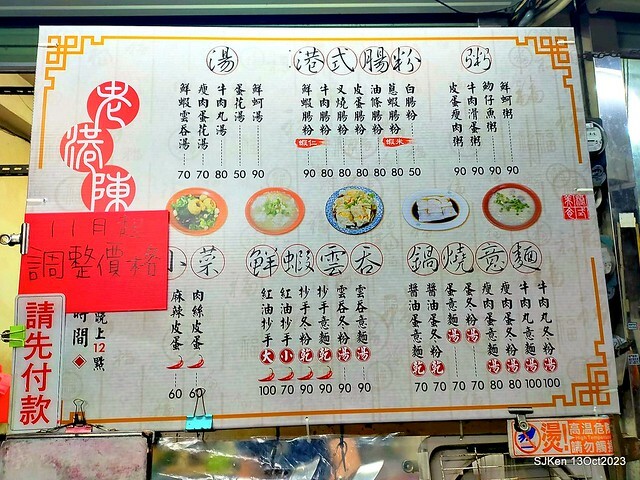 老港陳
湯
鮮蝦雲吞湯 70
瘦肉蛋花湯 70
牛肉丸湯 80
蛋花湯 50
鮮蚵湯 90
港式腸粉
鮮蝦腸粉 蝦仁 90
牛肉腸粉 80
叉燒腸粉 80
皮蛋腸粉 80
油條腸粉 80
蔥蝦腸粉 蝦米 80
白腸粉 50
粥
皮蛋瘦肉粥 90
牛肉滑蛋粥 90
魩仔魚粥 90
鮮蚵粥 90
11月起
調整價格
請先付款
時間
晚上12點
小菜
麻辣皮蛋 60
肉絲皮蛋 60
鮮蝦雲吞
紅油抄手 大 100
紅油抄手 小 70
抄手冬粉 乾 90
抄手意麵 乾 90
雲吞冬粉 湯 90
雲吞意麵 湯 90
鍋燒意麵
醬油蛋意麵 乾 70
醬油蛋冬粉 乾 70
蛋意麵 湯 70
蛋冬粉 湯 70
瘦肉蛋意麵 湯 80
瘦肉蛋冬粉 湯 80
牛肉丸意麵 湯 100
牛肉丸冬粉 湯 100
燙!
高溫危險
請勿觸
SJKen 13Oct2023